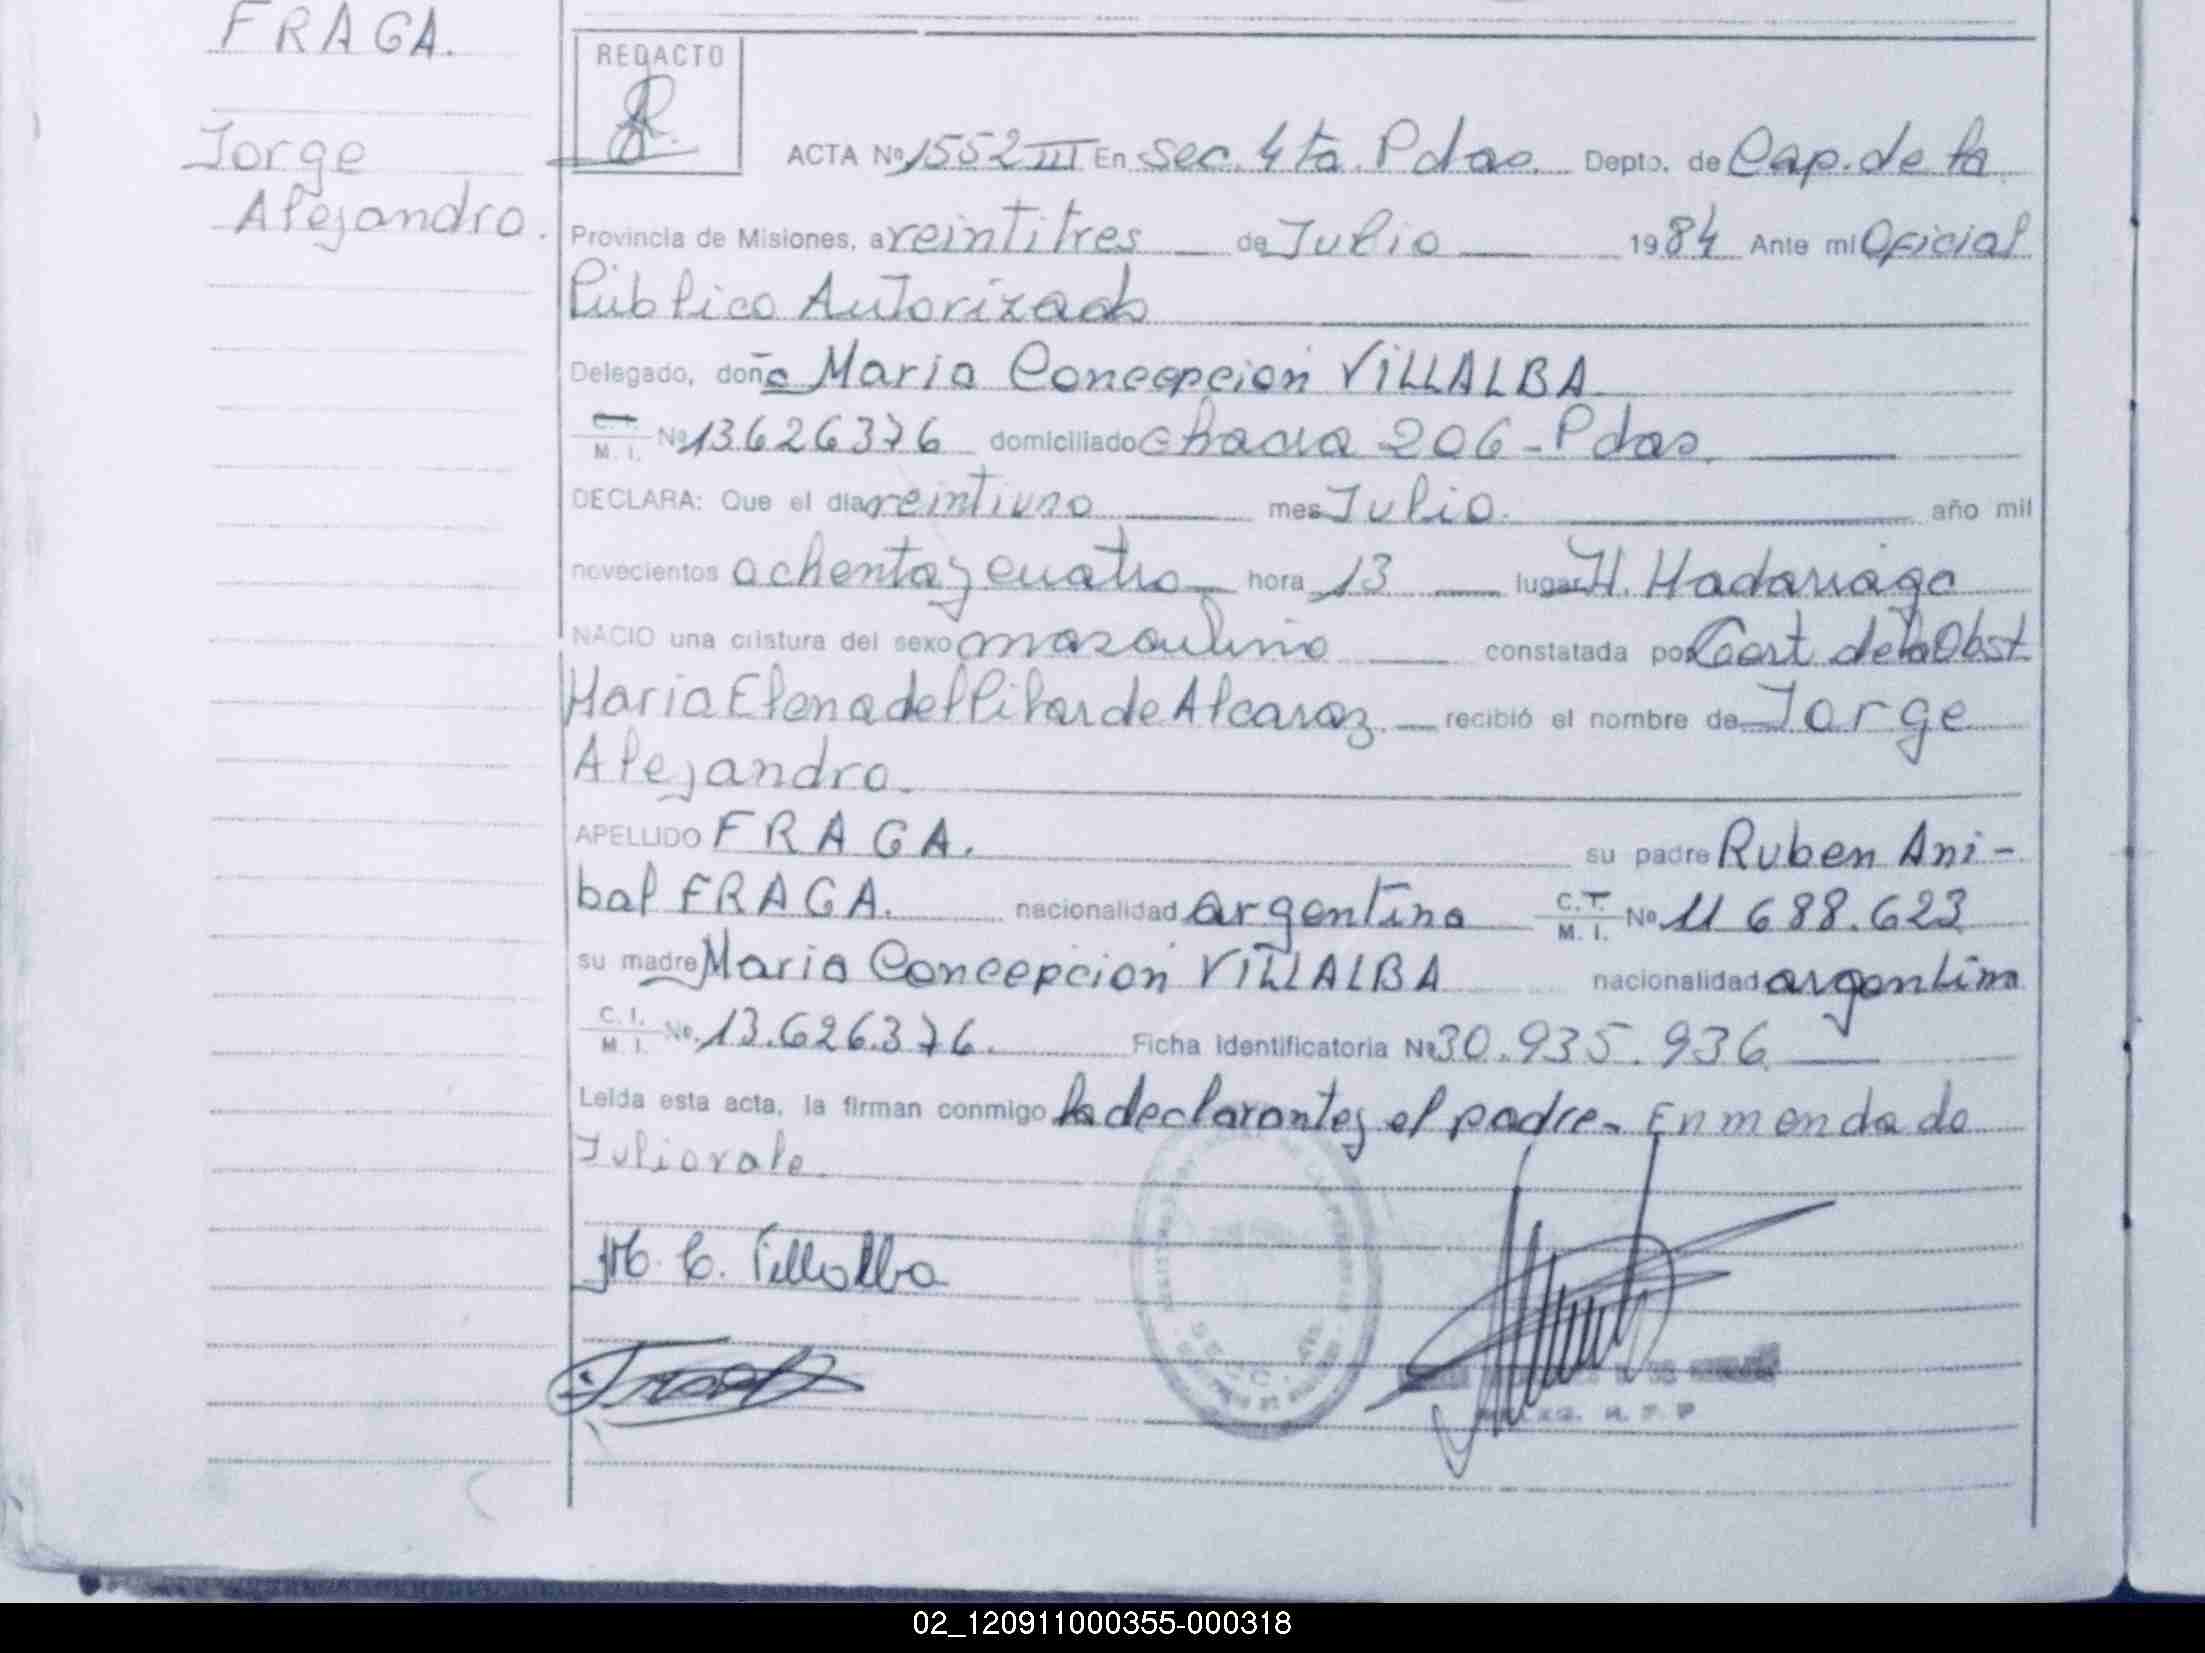 FRAGA.
Jorge
Alejandro.
REDACTO
ACTA Nº 1552 III En Sec. 4ta. Pdas. Depto. de Cap. de la
Provincia de Misiones, a veintitres de Julio 1984 Ante mi Oficial
Público Autorizado
Delegado, doña Maria Concepción VILLALBA
C. I. M. I. Nº 13.626376 domiciliado chacra 206 - Pdas.
DECLARA: Que el día veintiuno mes Julio. año mil
novecientos ochenta y cuatro hora 13 lugar H. Madariaga
NACIO una criatura del sexo masculino constatada por Cert de la Obst
Maria Elena del Pilar de Alcaraz. recibió el nombre de Jorge
Alejandro.
APELLIDO FRAGA. su padre Ruben Ani-
bal FRAGA. nacionalidad argentina C. I. M. I. Nº 11 688.623
su madre Maria Concepción VILLALBA nacionalidad argentina
C. I. M. I. Nº 13.626.376. Ficha Identificatoria Nº 30.935.936
Leída esta acta, la firman conmigo la declarante y el padre. Enmendado
Julio vale.
M. C. Villalba
02_120911000355-000318